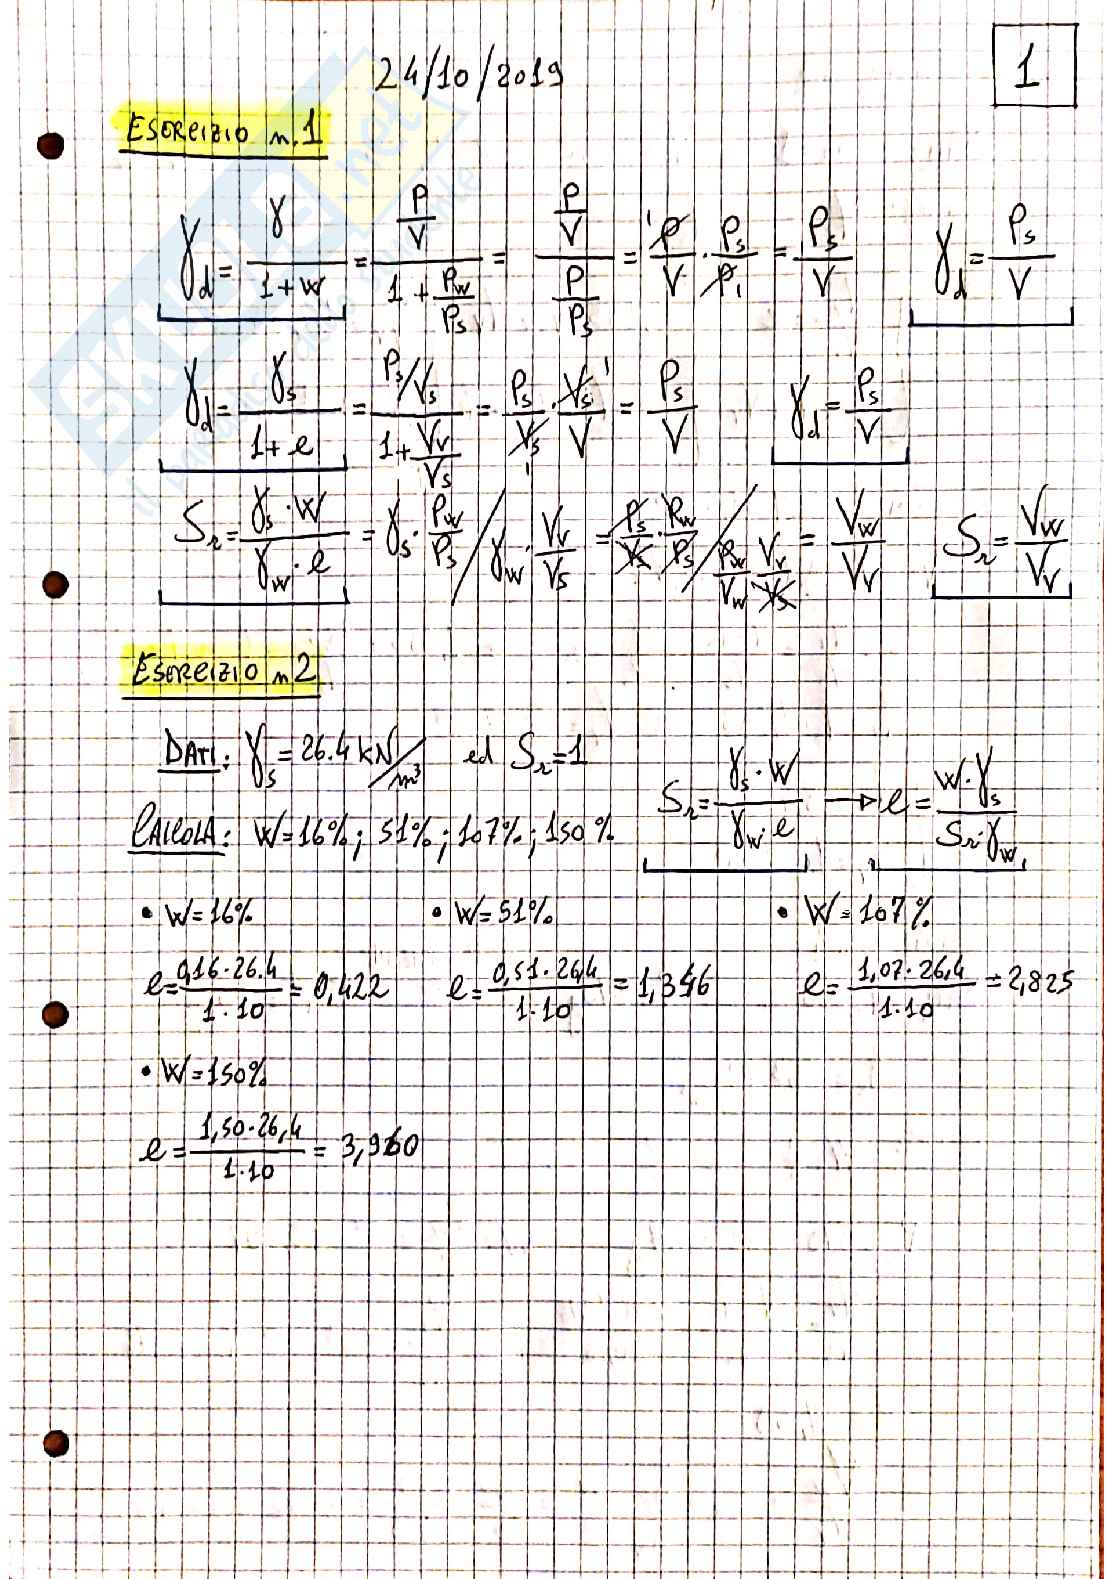 1
24/10/2019
ESERCIZIO n.1
γd = γ/(1+w) = (P/V)/(1+Pw/Ps) = (P/V)/(P/Ps) = P/V · Ps/P = Ps/V γd = Ps/V
γd = γs/(1+e) = (Ps/Vs)/(1+Vv/Vs) = Ps/Vs · Vs/V = Ps/V γd = Ps/V
Sr = (γs·w)/(γw·e) = γs · Pw/Ps / γw · Vv/Vs = Ps/Vs · Pw/Ps / Pw/Vw Vv/Vs = Vw/Vv Sr = Vw/Vv
ESERCIZIO n2
DATI: γs = 26.4 kN/m³ ed Sr = 1
Sr = (γs·w)/(γw·e) → e = (w·γs)/(Sr·γw)
CALCOLA: W = 16%; 51%; 107%; 150%
• W = 16% • W = 51% • W = 107%
e = (0,16·26.4)/(1·10) = 0,422 e = (0,51·26,4)/(1·10) = 1,346 e = (1,07·26,4)/(1·10) = 2,825
• W = 150%
e = (1,50·26,4)/(1·10) = 3,960
SKUOLA.net